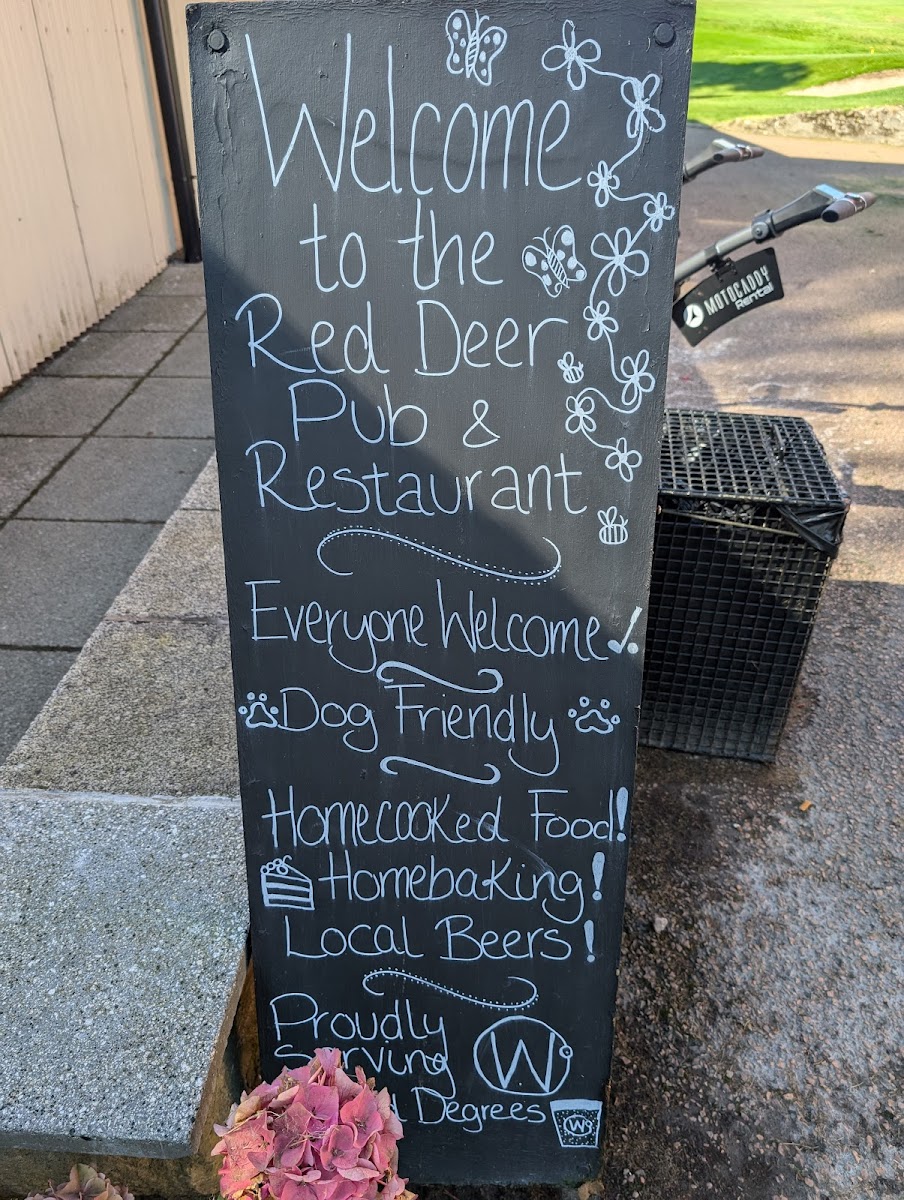 Welcome
to the
Red Deer
Pub &
Restaurant
Everyone Welcome!
Dog Friendly
Homecooked Food!
Homebaking!
Local Beers!
Proudly
Serving
W°
Degrees
W°
MOTOCADDY
Rental